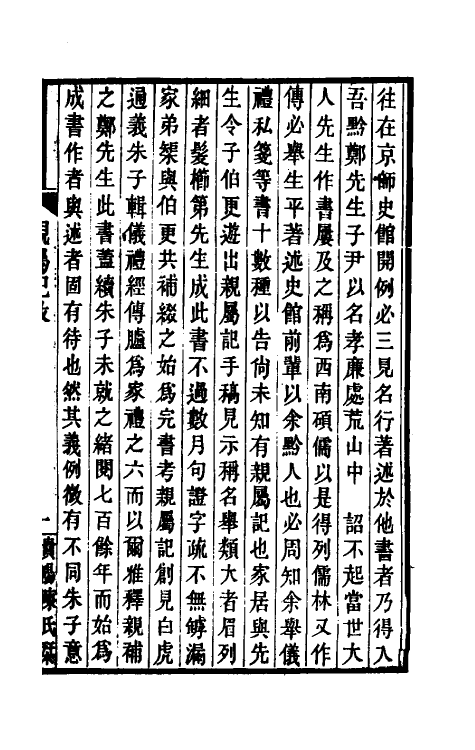 往在京師史館開例必三見名行著述於他書者乃得入
吾黔鄭先生子尹以名孝廉處荒山中　詔不起當世大
人先生作書屢及之稱為西南碩儒以是得列儒林又作
傳必舉生平著述史館前輩以余黔人也必周知余舉儀
禮私箋等書十數種以告尙未知有親屬記也家居與先
生令子伯更遊出親屬記手稿見示稱名舉類大者眉列
細者髮櫛第先生成此書不過數月句證字疏不無罅漏
家弟榘與伯更共補綴之始為完書考親屬記創見白虎
通義朱子輯儀禮經傳臚為家禮之六而以爾雅釋親補
之鄭先生此書蓋續朱子未就之緒閱七百餘年而始為
成書作者與述者固有待也然其義例微有不同朱子意
親屬記敘
一
貴陽陳氏栞